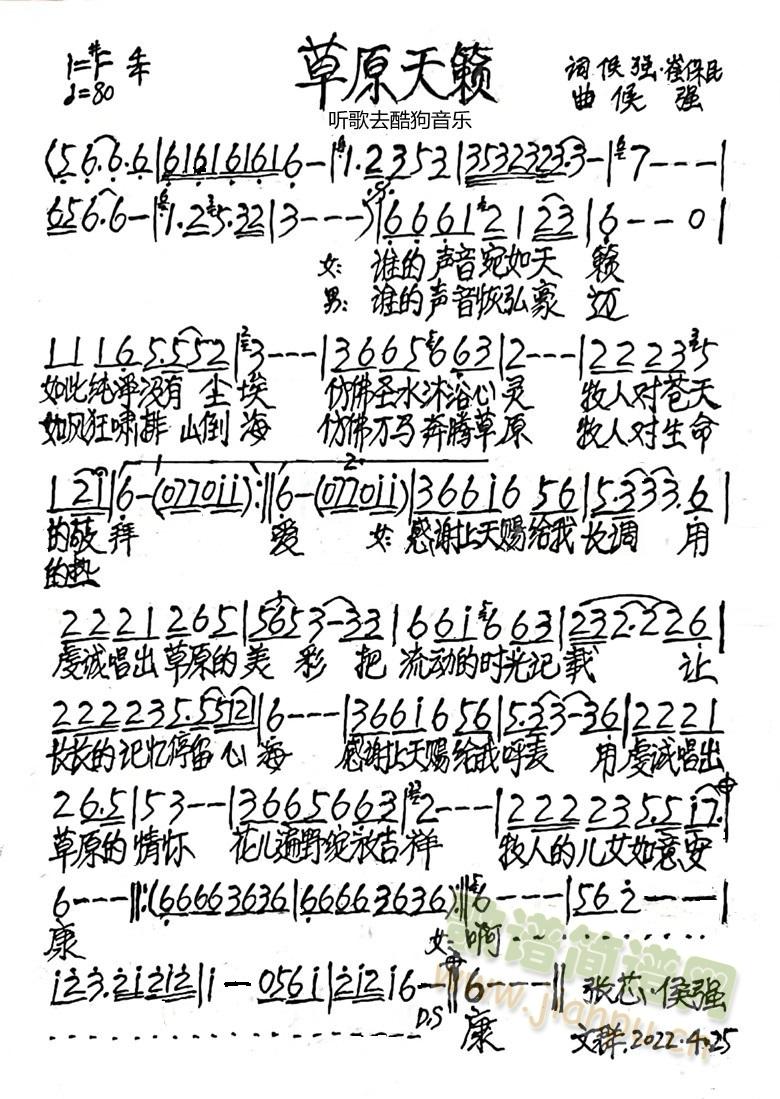 1=#F 4/4
草原天籁
♩=80
听歌去酷狗音乐
词 侯强·崔保民
曲 侯强
(5 6.6.6|616161616–|1.2353|3532323.3–|7---|
656.6–|1.25.32|3---)|6661 21 23|6--0|
女: 谁的声音宛如天 籁
男: 谁的声音恢弘豪 迈
11165.552|3---|36656663|2---|22235
如此纯净没有 尘埃 仿佛圣水沐浴心灵 牧人对苍天
如风狂啸排 山倒海 仿佛万马奔腾草原 牧人对生命
1 2i|6-(0770ii):||6-(0770ii)|366i6 56|5.333.6|
的敬 拜 爱 女: 感谢上天赐给我 长调 用
的热
2221 265|5653-33|66i6663|232.2226|
虔诚唱出 草原的 美 彩 把 流动的时光记 载 让
222235.5512|6---|3661656|5.33-36|2221
长长的记忆停留心海 感谢上天赐给我呼麦 用虔诚唱出
26.5|53--|36656663|2---|222235.5i7.|
草原的 情怀 花儿遍野绽放吉祥 牧人的儿女如意安
6---||:(66663636|66663636):||6---|562---|
康 女: 啊
i23.2i2i2|i–056i|2i2i6–||6---||
D.S
康
张芯·侯强
文群.2022.4.25
歌谱简谱网
www.jianpu.cn